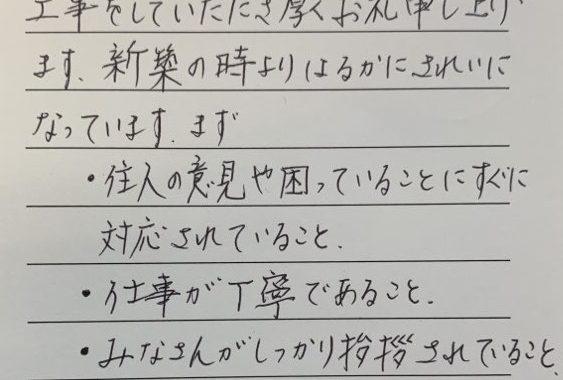 工事をしていただき厚くお礼申し上げ
ます。新築の時よりはるかにきれいに
なっています。まず
・住人の意見や困っていることにすぐに
対応されていること。
・仕事が丁寧であること。
・みなさんがしっかり挨拶されていること。